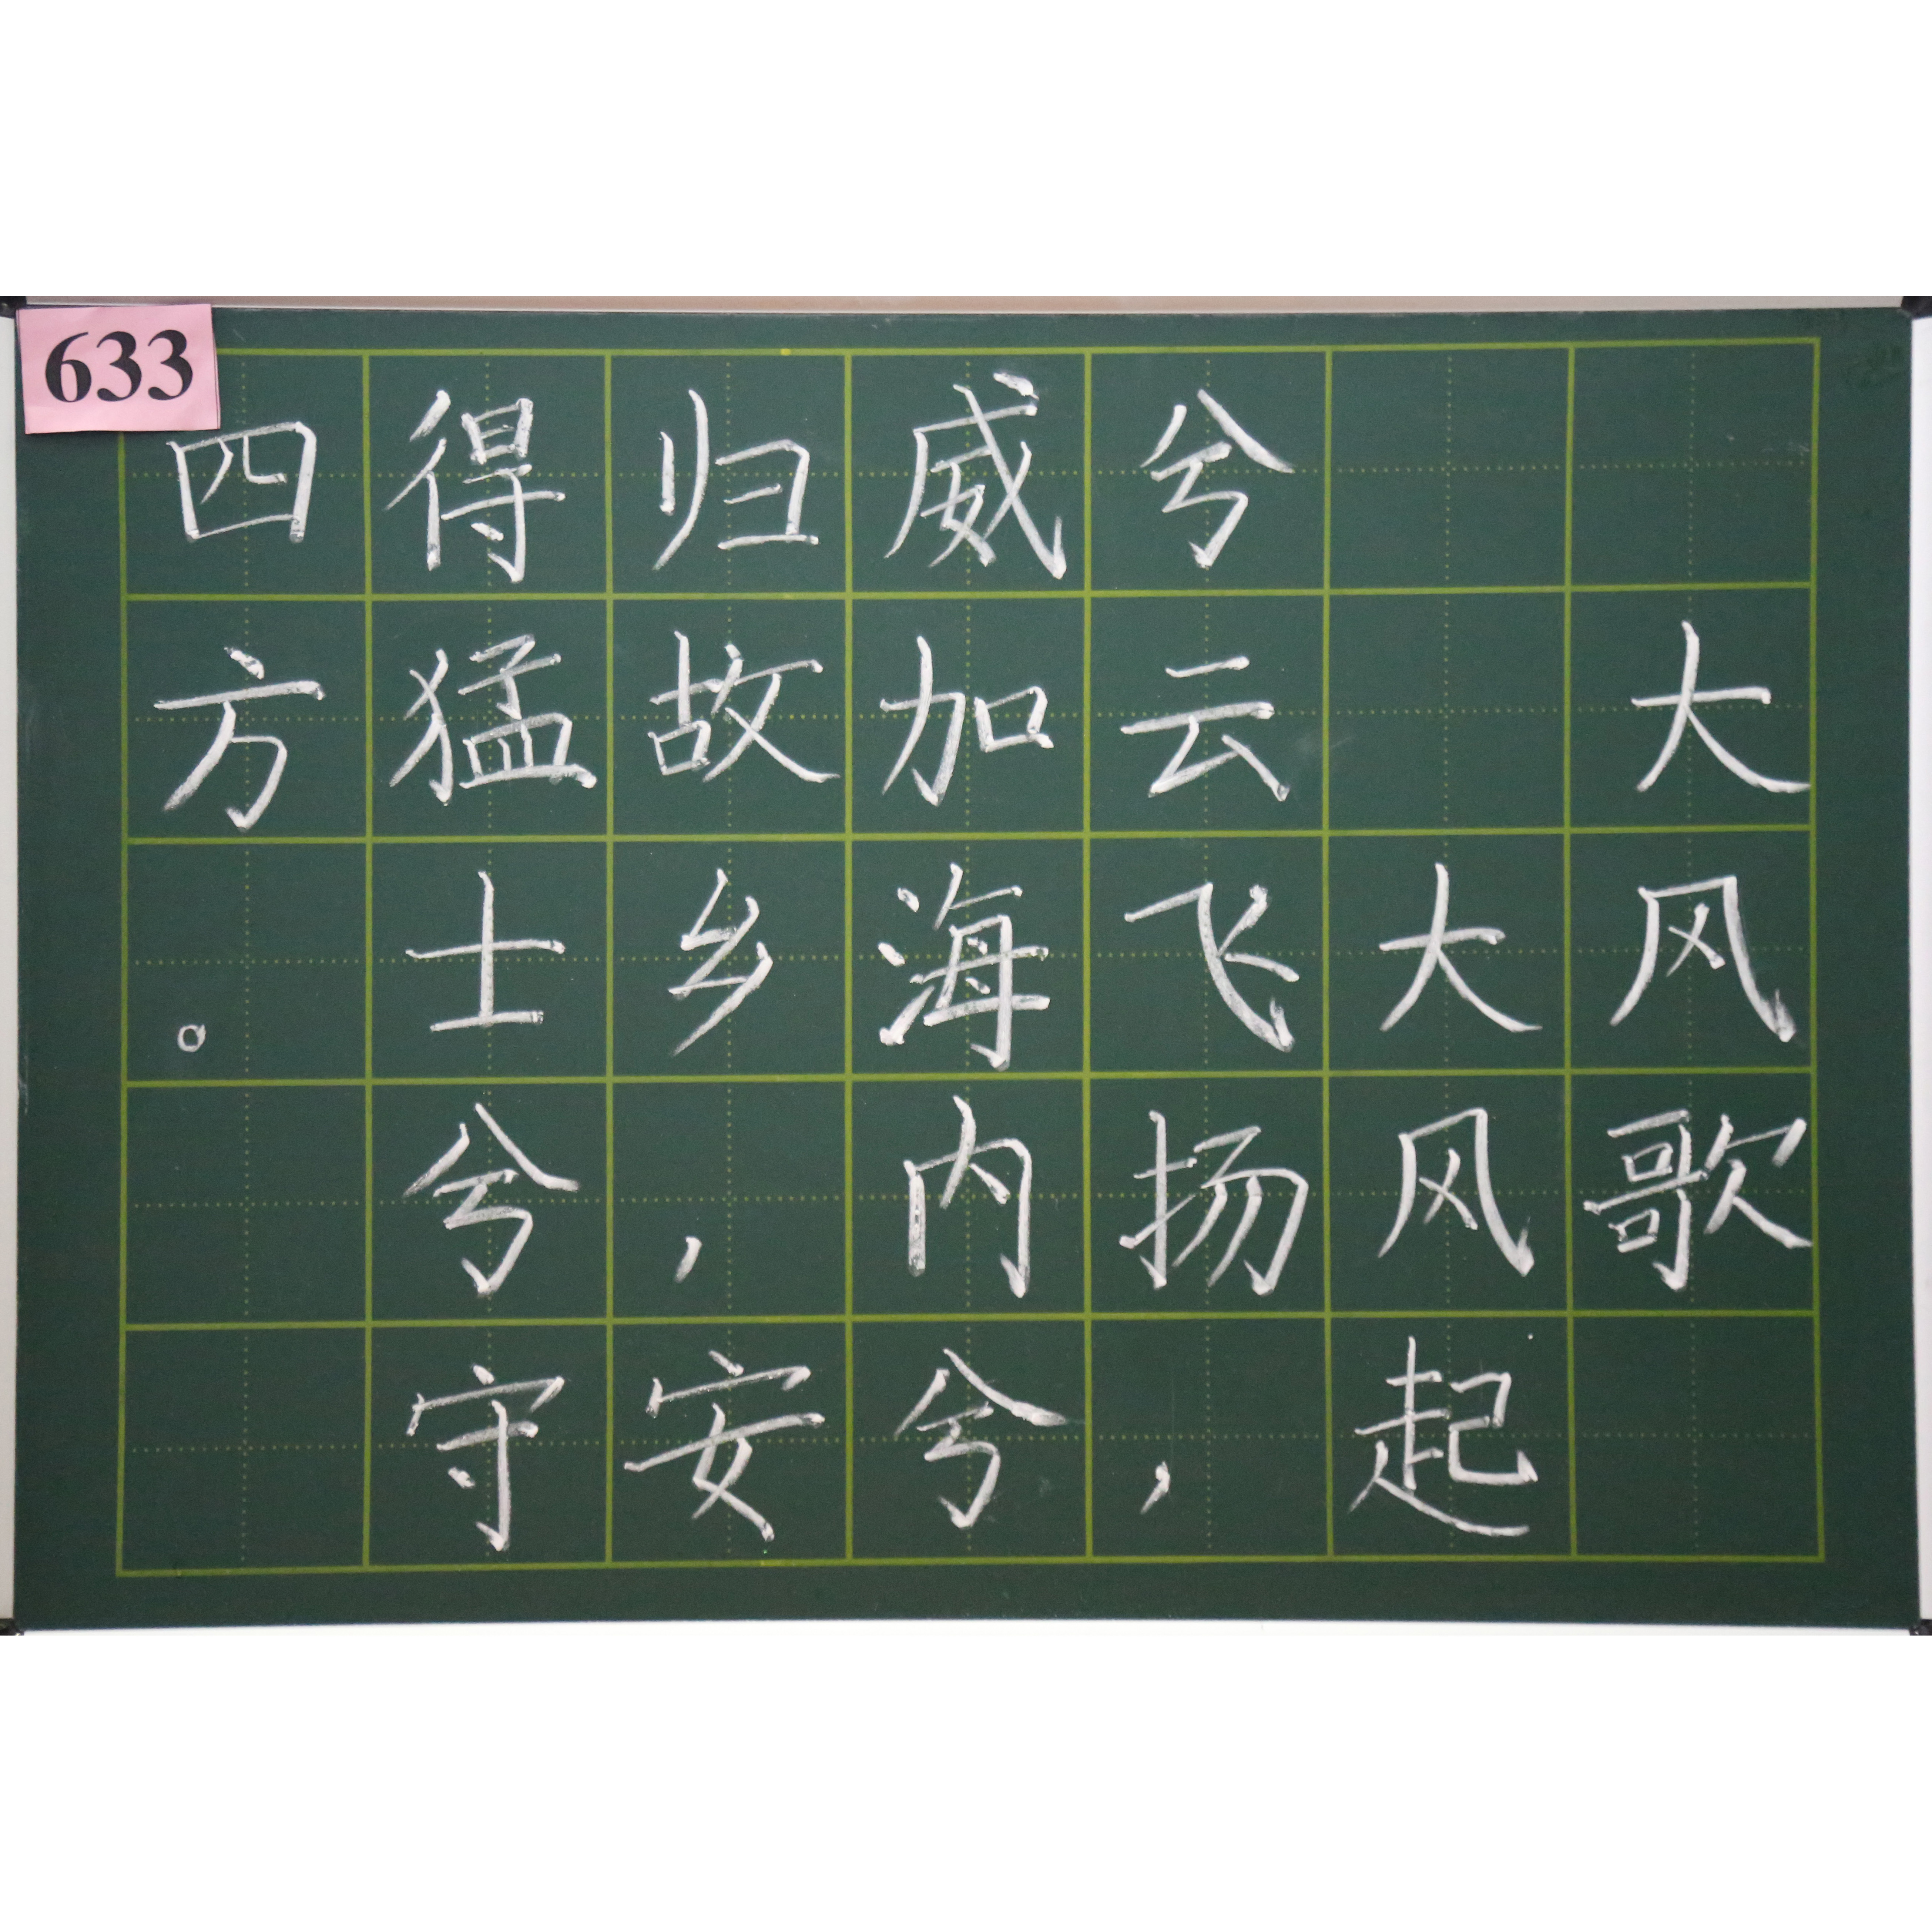 633
大风歌
大风起
兮云飞扬，
威加海内兮
归故乡，安
得猛士兮守
四方。